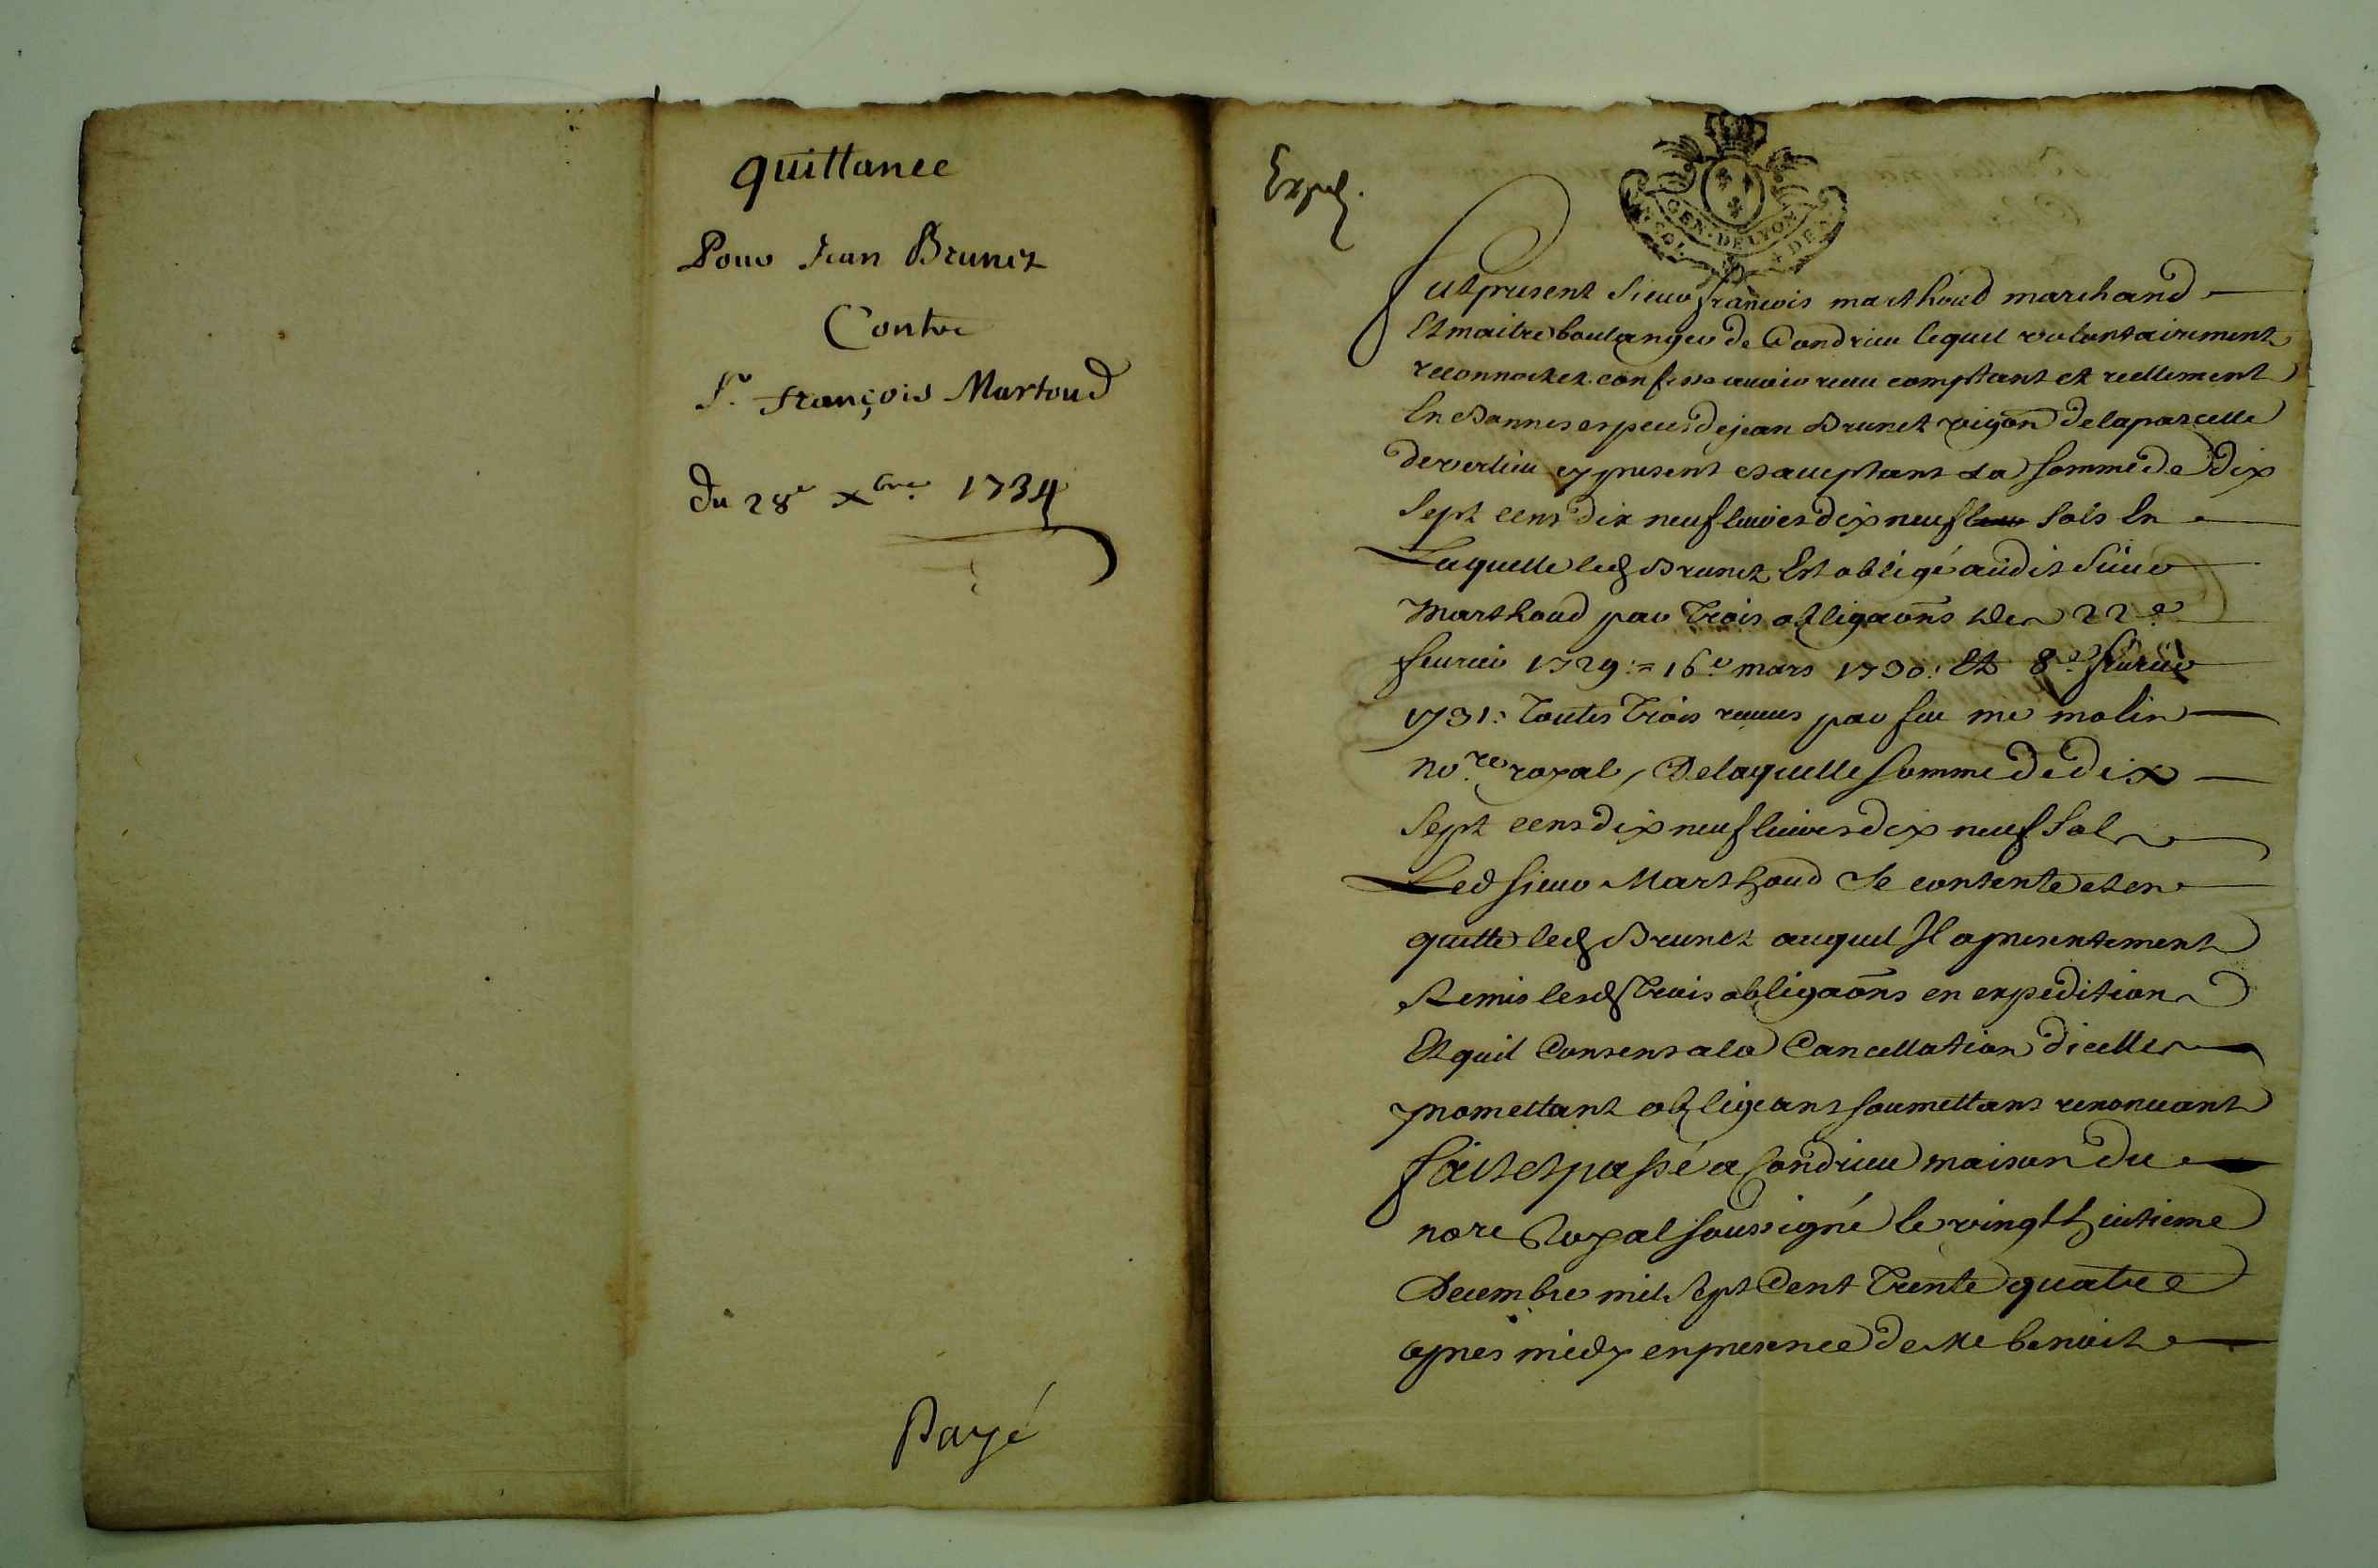 quittance
Pour Jean Brunet
Contre
Sr. François Martoud
du 28e xbre 1734
Payé
Exped.
GEN. DE LYON
SOL. DE
fut present sieur françois marthoud marchand
Et maitre boulanger de Condrieu lequel volontairement
reconnoit et confesse avoir receu comptant et reellement
En bonnes especes de jean Brunet vigon de laparcelle
de verlieu cy present et acceptant La somme de dix
Sept cens dix neuf livres dix neuf sols En
Laquelle led Brunet Est obligé audit sieur
Marthoud par trois obligaons des 22e
fevrier 1729 = 16e mars 1730: Et 8e fevrier
1731: toutes trois receues par feu me molin
no.re royal, De laquelle somme de dix
Sept cens dix neuf livres dix neuf sols
Led sieur Marthoud se contente et en
quitte led Brunet auquel Il a presentement
Remis lesd trois obligaons en expedition
Et quil Consens a la Cancellation dicelles
promettant obligeant soumettans renoncant
fait et passé a Condrieu maison du
nore Royal soussigné le vingt huitieme
Decembre mil Sept Cent Trente quatre
apres midy en presence de Me benoit